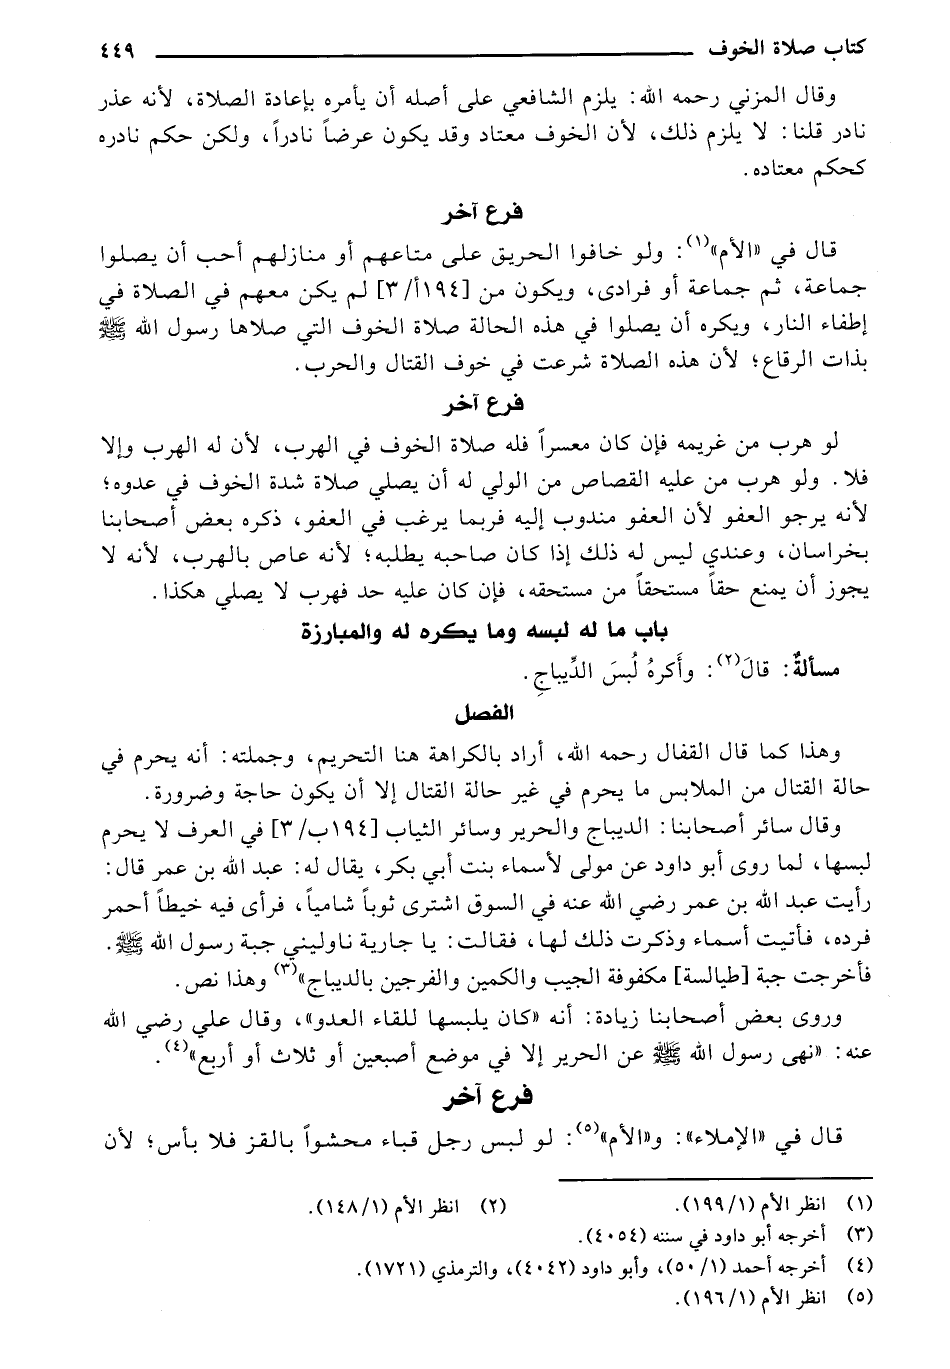 كتاب صلاة الخوف ٤٤٩
وقال المزني رحمه الله: يلزم الشافعي على أصله أن يأمره بإعادة الصلاة، لأنه عذر
نادر قلنا: لا يلزم ذلك، لأن الخوف معتاد وقد يكون عرضاً نادراً، ولكن حكم نادره
كحكم معتاده.
فرع آخر
قال في «الأم»(١): ولو خافوا الحريق على متاعهم أو منازلهم أحب أن يصلوا
جماعة، ثم جماعة أو فرادى، ويكون من [١٩٤أ/ ٣] لم يكن معهم في الصلاة في
إطفاء النار، ويكره أن يصلوا في هذه الحالة صلاة الخوف التي صلاها رسول الله ﷺ
بذات الرقاع؛ لأن هذه الصلاة شرعت في خوف القتال والحرب.
فرع آخر
لو هرب من غريمه فإن كان معسراً فله صلاة الخوف في الهرب، لأن له الهرب وإلا
فلا. ولو هرب من عليه القصاص من الولي له أن يصلي صلاة شدة الخوف في عدوه؛
لأنه يرجو العفو لأن العفو مندوب إليه فربما يرغب في العفو، ذكره بعض أصحابنا
بخراسان، وعندي ليس له ذلك إذا كان صاحبه يطلبه؛ لأنه عاص بالهرب، لأنه لا
يجوز أن يمنع حقاً مستحقاً من مستحقه، فإن كان عليه حد فهرب لا يصلي هكذا.
باب ما له لبسه وما يكره له والمبارزة
مسألةٌ: قالَ(٢): وأَكرهُ لُبسَ الدِّيباجِ.
الفصل
وهذا كما قال القفال رحمه الله، أراد بالكراهة هنا التحريم، وجملته: أنه يحرم في
حالة القتال من الملابس ما يحرم في غير حالة القتال إلا أن يكون حاجة وضرورة.
وقال سائر أصحابنا: الديباج والحرير وسائر الثياب [١٩٤ب/ ٣] في العرف لا يحرم
لبسها، لما روى أبو داود عن مولى لأسماء بنت أبي بكر، يقال له: عبد الله بن عمر قال:
رأيت عبد الله بن عمر رضي الله عنه في السوق اشترى ثوباً شامياً، فرأى فيه خيطاً أحمر
فرده، فأتيت أسماء وذكرت ذلك لها، فقالت: يا جارية ناوليني جبة رسول الله ﷺ.
فأخرجت جبة [طيالسة] مكفوفة الجيب والكمين والفرجين بالديباج»(٣) وهذا نص.
وروى بعض أصحابنا زيادة: أنه «كان يلبسها للقاء العدو»، وقال علي رضي الله
عنه: «نهى رسول الله ﷺ عن الحرير إلا في موضع أصبعين أو ثلاث أو أربع»(٤).
فرع آخر
قال في «الإملاء»: و«الأم»(٥): لو لبس رجل قباء محشواً بالقز فلا بأس؛ لأن
(١) انظر الأم (١/ ١٩٩). (٢) انظر الأم (١/ ١٤٨).
(٣) أخرجه أبو داود في سننه (٤٠٥٤).
(٤) أخرجه أحمد (١/ ٥٠)، وأبو داود (٤٠٤٢)، والترمذي (١٧٢١).
(٥) انظر الأم (١/ ١٩٦).